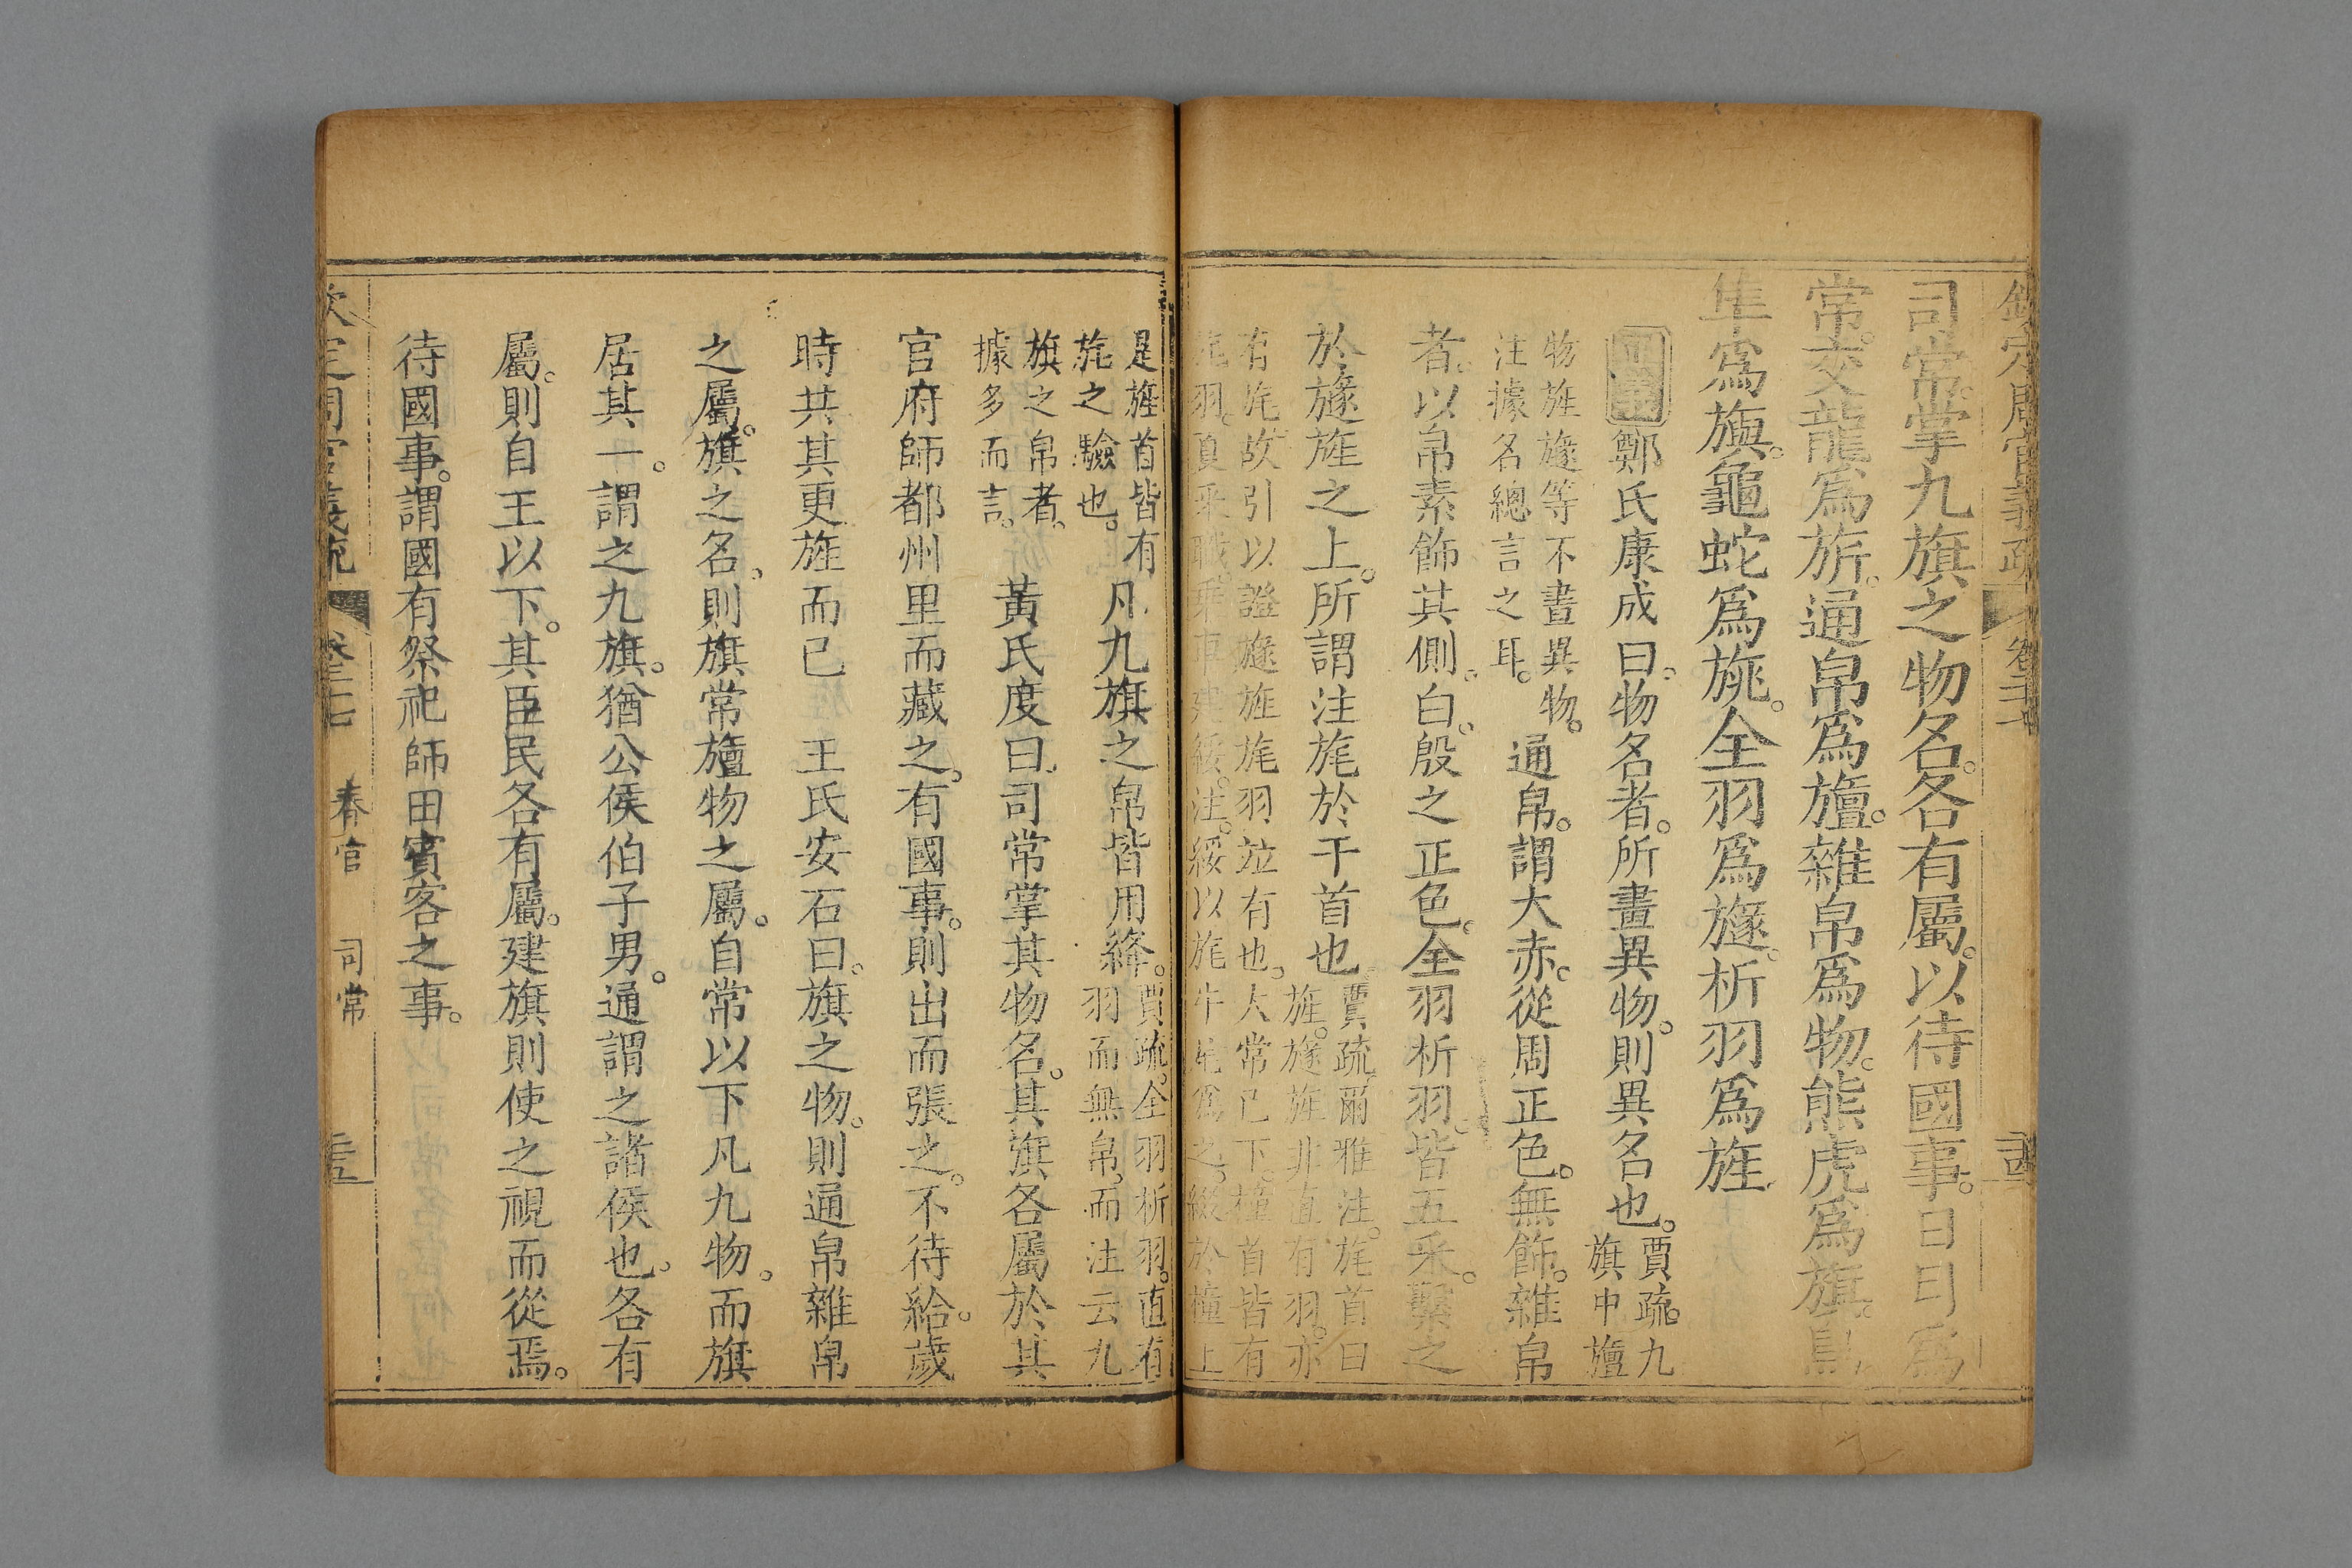 欽定周官義疏 卷二十七
司常。掌九旗之物名。各有屬。以待國事。日月爲
常。交龍爲旂。通帛爲旜。雜帛爲物。熊虎爲旗。鳥
隼爲旟。龜蛇爲旐。全羽爲旞。析羽爲旌。
正義 鄭氏康成曰。物名者。所畫異物。則異名也。賈疏。九
旗中旜
物旌旞等不畫異物。
注據名總言之耳。通帛。謂大赤。從周正色。無飾。雜帛
者。以帛素飾其側。白。殷之正色。全羽析羽。皆五采。繫之
於旞旌之上。所謂注旄於干首也 賈疏爾雅注。旄首曰
旌。旞旌非直有羽。亦
有旄。故引以證旞旌旄羽竝有也。大常已下。橦首皆有
旄羽。夏采職。乘車建綏。注。綏以旄牛尾爲之。綴於橦上
是旌首皆有
旄之驗也。凡九旗之帛皆用絳。賈疏。全羽析羽。直有
羽而無帛。而注云九
旗之帛者。
據多而言。 黃氏度曰。司常掌其物名。其旗各屬於其
官府師都州里而藏之。有國事。則出而張之。不待給。歲
時共其更旌而已 王氏安石曰。旗之物。則通帛雜帛
之屬。旗之名。則旗常旜物之屬。自常以下凡九物。而旗
居其一。謂之九旗。猶公侯伯子男。通謂之諸侯也。各有
屬。則自王以下。其臣民各有屬。建旗則使之視而從焉。
待國事。謂國有祭祀師田賓客之事。
欽定周官義疏 卷二十七 春官 司常